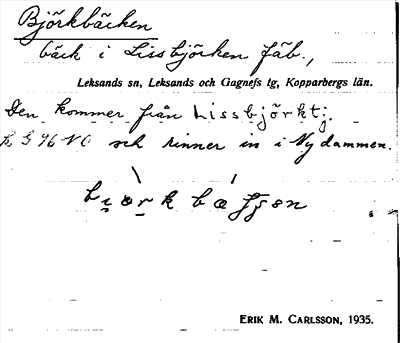 Björkbäcken
bäck i Lissbjörken fäb.,
Leksands sn, Leksands och Gagnefs tg, Kopparbergs län.
Den kommer från Lissbjörktj.
och rinner in i Nydammen.
ERIK M. CARLSSON, 1935.